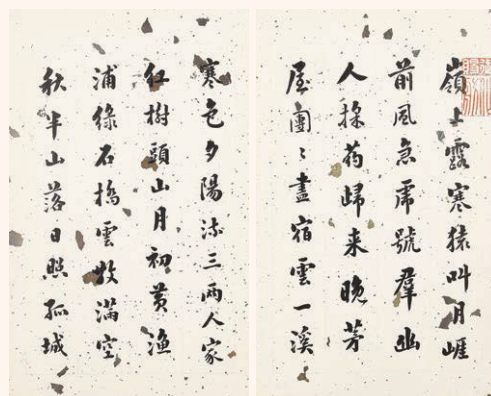 嶺上露寒猿叫月崖
前風急虎號羣幽
人採葯歸来晚茅
屋團〻盡宿雲一溪
寒色夕陽流三两人家
紅樹頭山月初黄漁
浦緑石橋雲散满空
秋半山落日照孤城